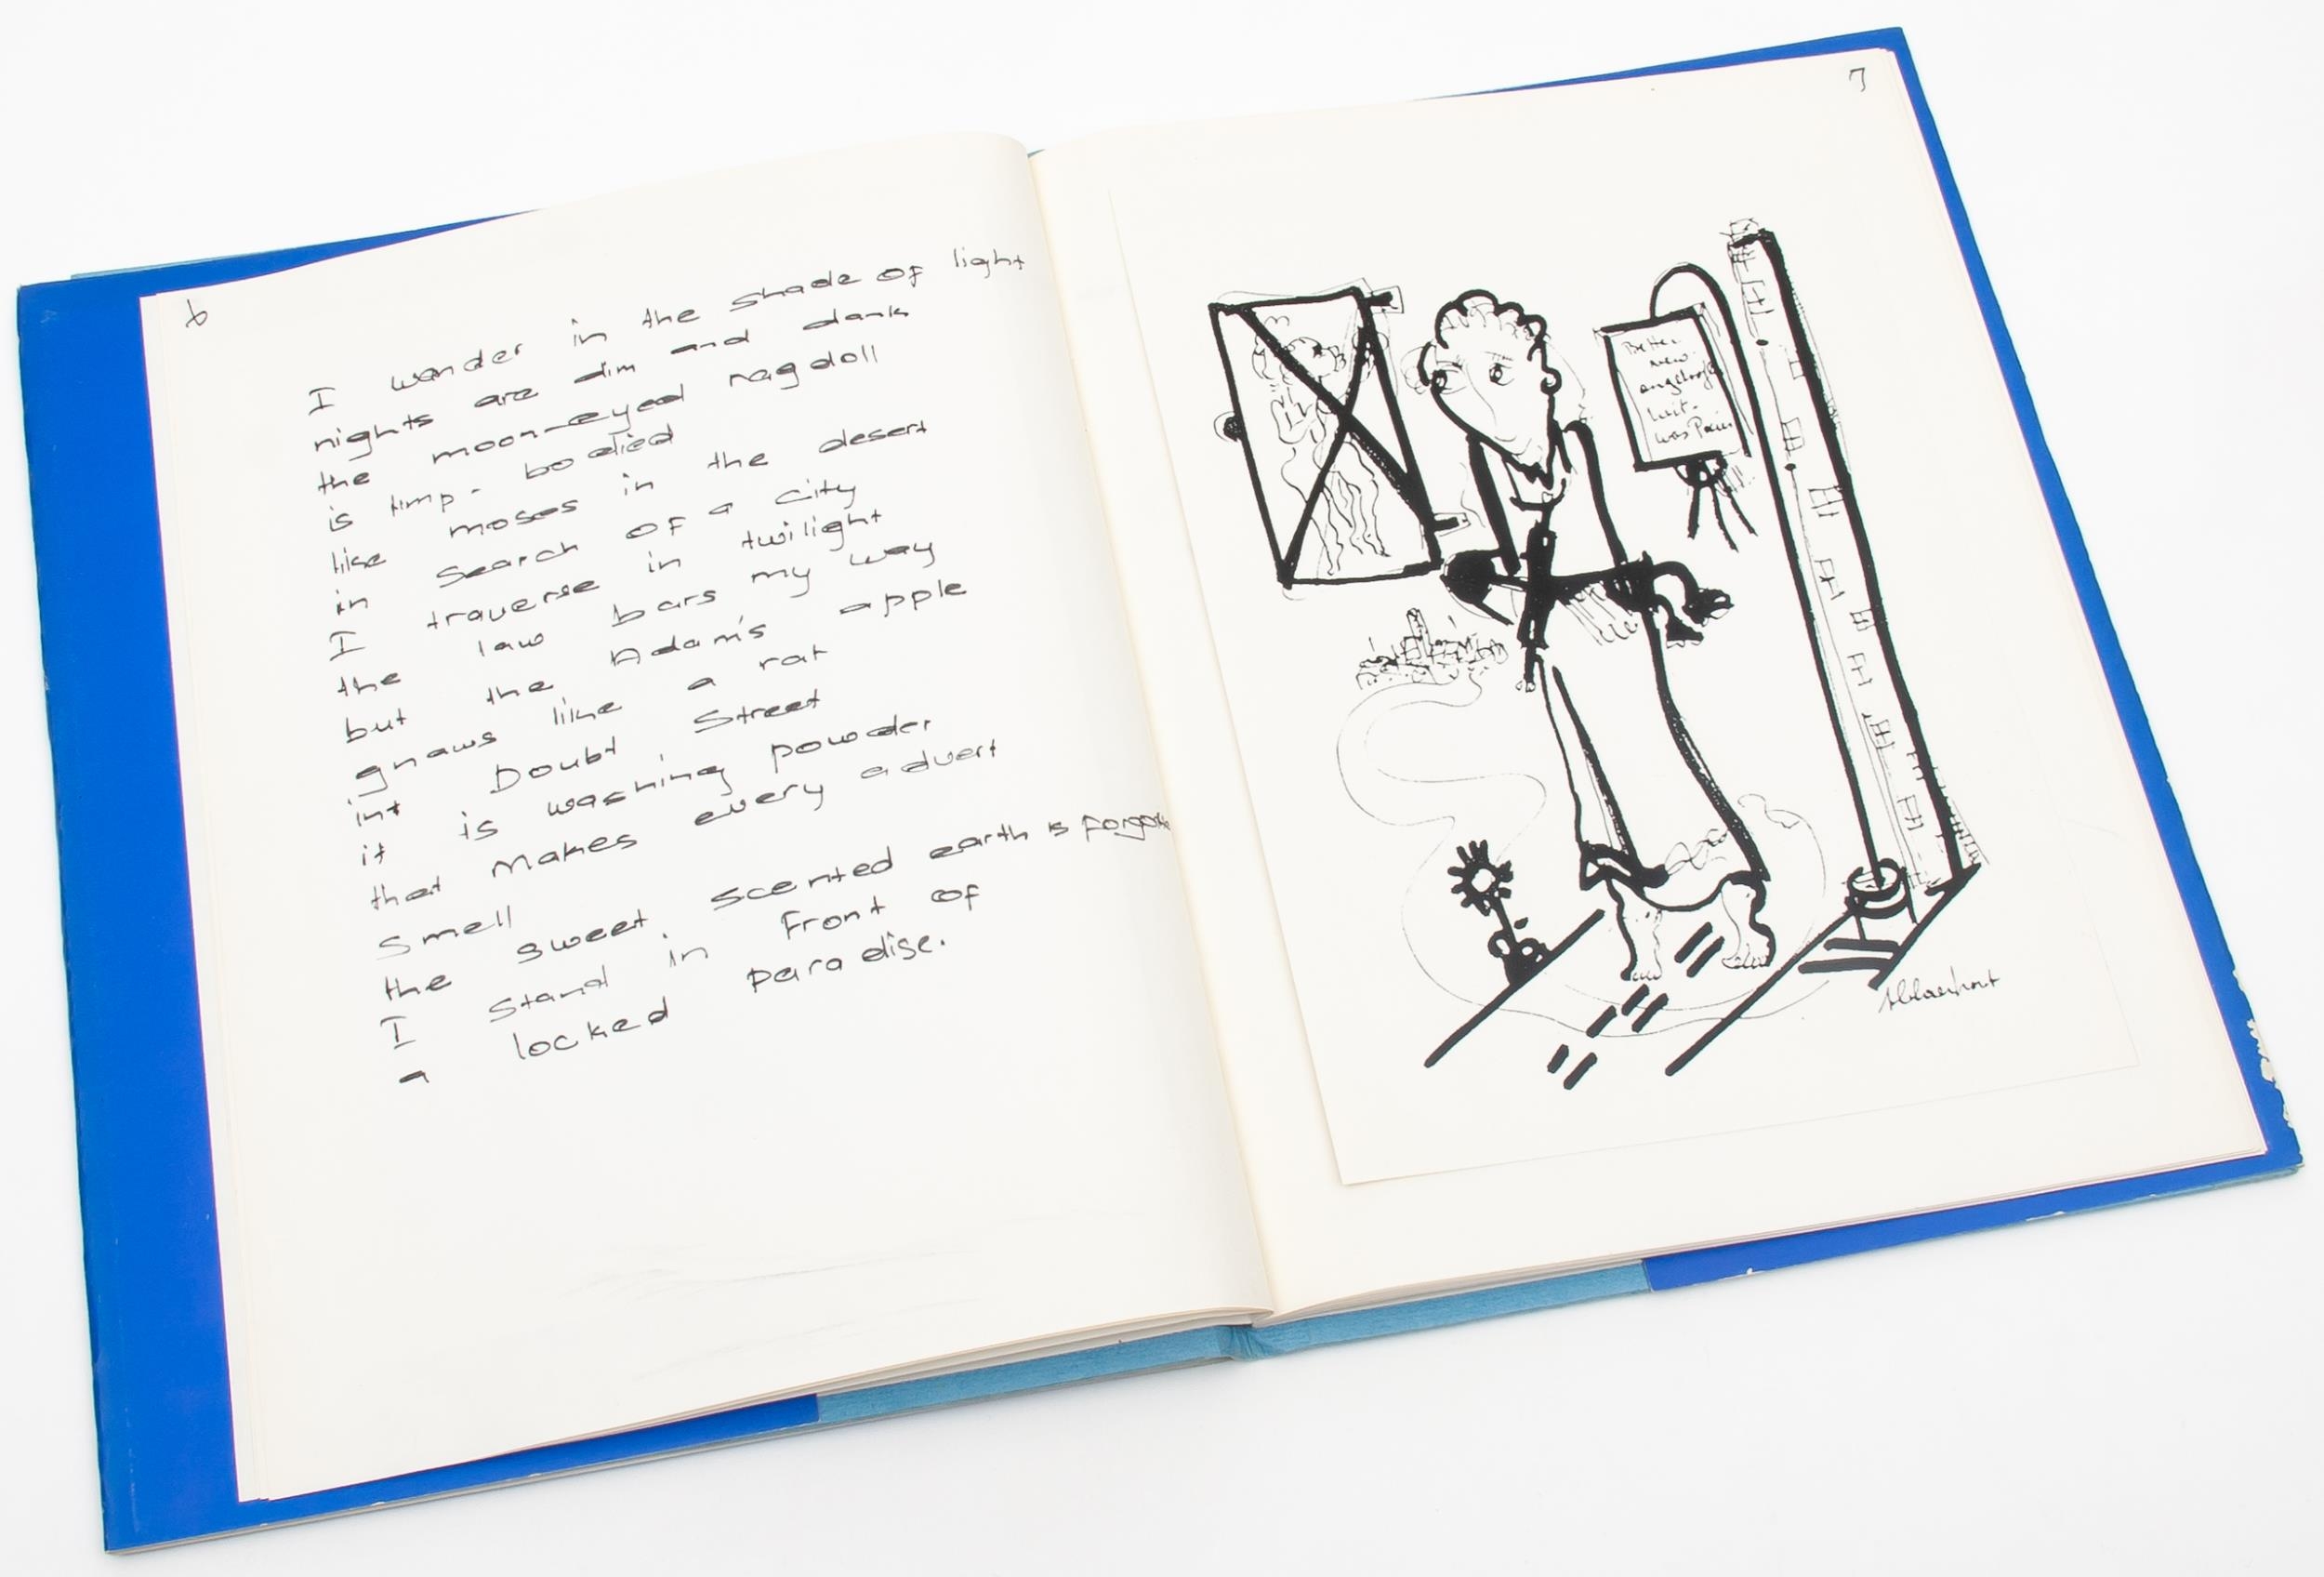 6
I wander in the shade of light
nights are dim and dank
the moon-eyed ragdoll
is limp-bodied
like moses in the desert
in search of a city
I traverse in twilight
the law bars my way
but the Adam's apple
gnaws like a rat
int Doubt Street
it is washing powder
that makes every advert
smell
the sweet scented earth is forgotte
I stand in front of
a locked paradise.
7
Better